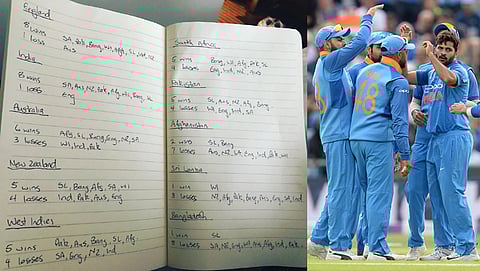 England
8 wins SA, Pak, Bang, WI, Afg, SL, Ind, NZ
1 loss Aus
India
8 wins SA, Aus, NZ, Pak, Afg, WI, Bang, SL
1 loss Eng
Australia
6 wins Afg, SL, Bang, Eng, NZ, SA
3 losses WI, Ind, Pak
New Zealand
5 wins SL, Bang, Afg, SA, WI
4 losses Ind, Pak, Aus, Eng
West Indies
5 wins Pak, Aus, Bang, SL, Afg
4 losses SA, Eng, NZ, Ind
South Africa
5 wins
4 losses Eng, Ind, NZ, Aus
Pakistan
5 wins SL, Aus, NZ, Afg, Bang
4 losses WI, Eng, Ind, SA
Afghanistan
2 wins SL, Bang
7 losses Aus, NZ, SA, Eng, Ind, Pak, WI
Sri Lanka
1 win WI
8 losses NZ, Afg, Pak, Bang, Aus, Eng, SA, Ind
Bangladesh
1 win SL
8 losses SA, NZ, Eng, WI, Aus, Afg, Ind, Pak
OPPO